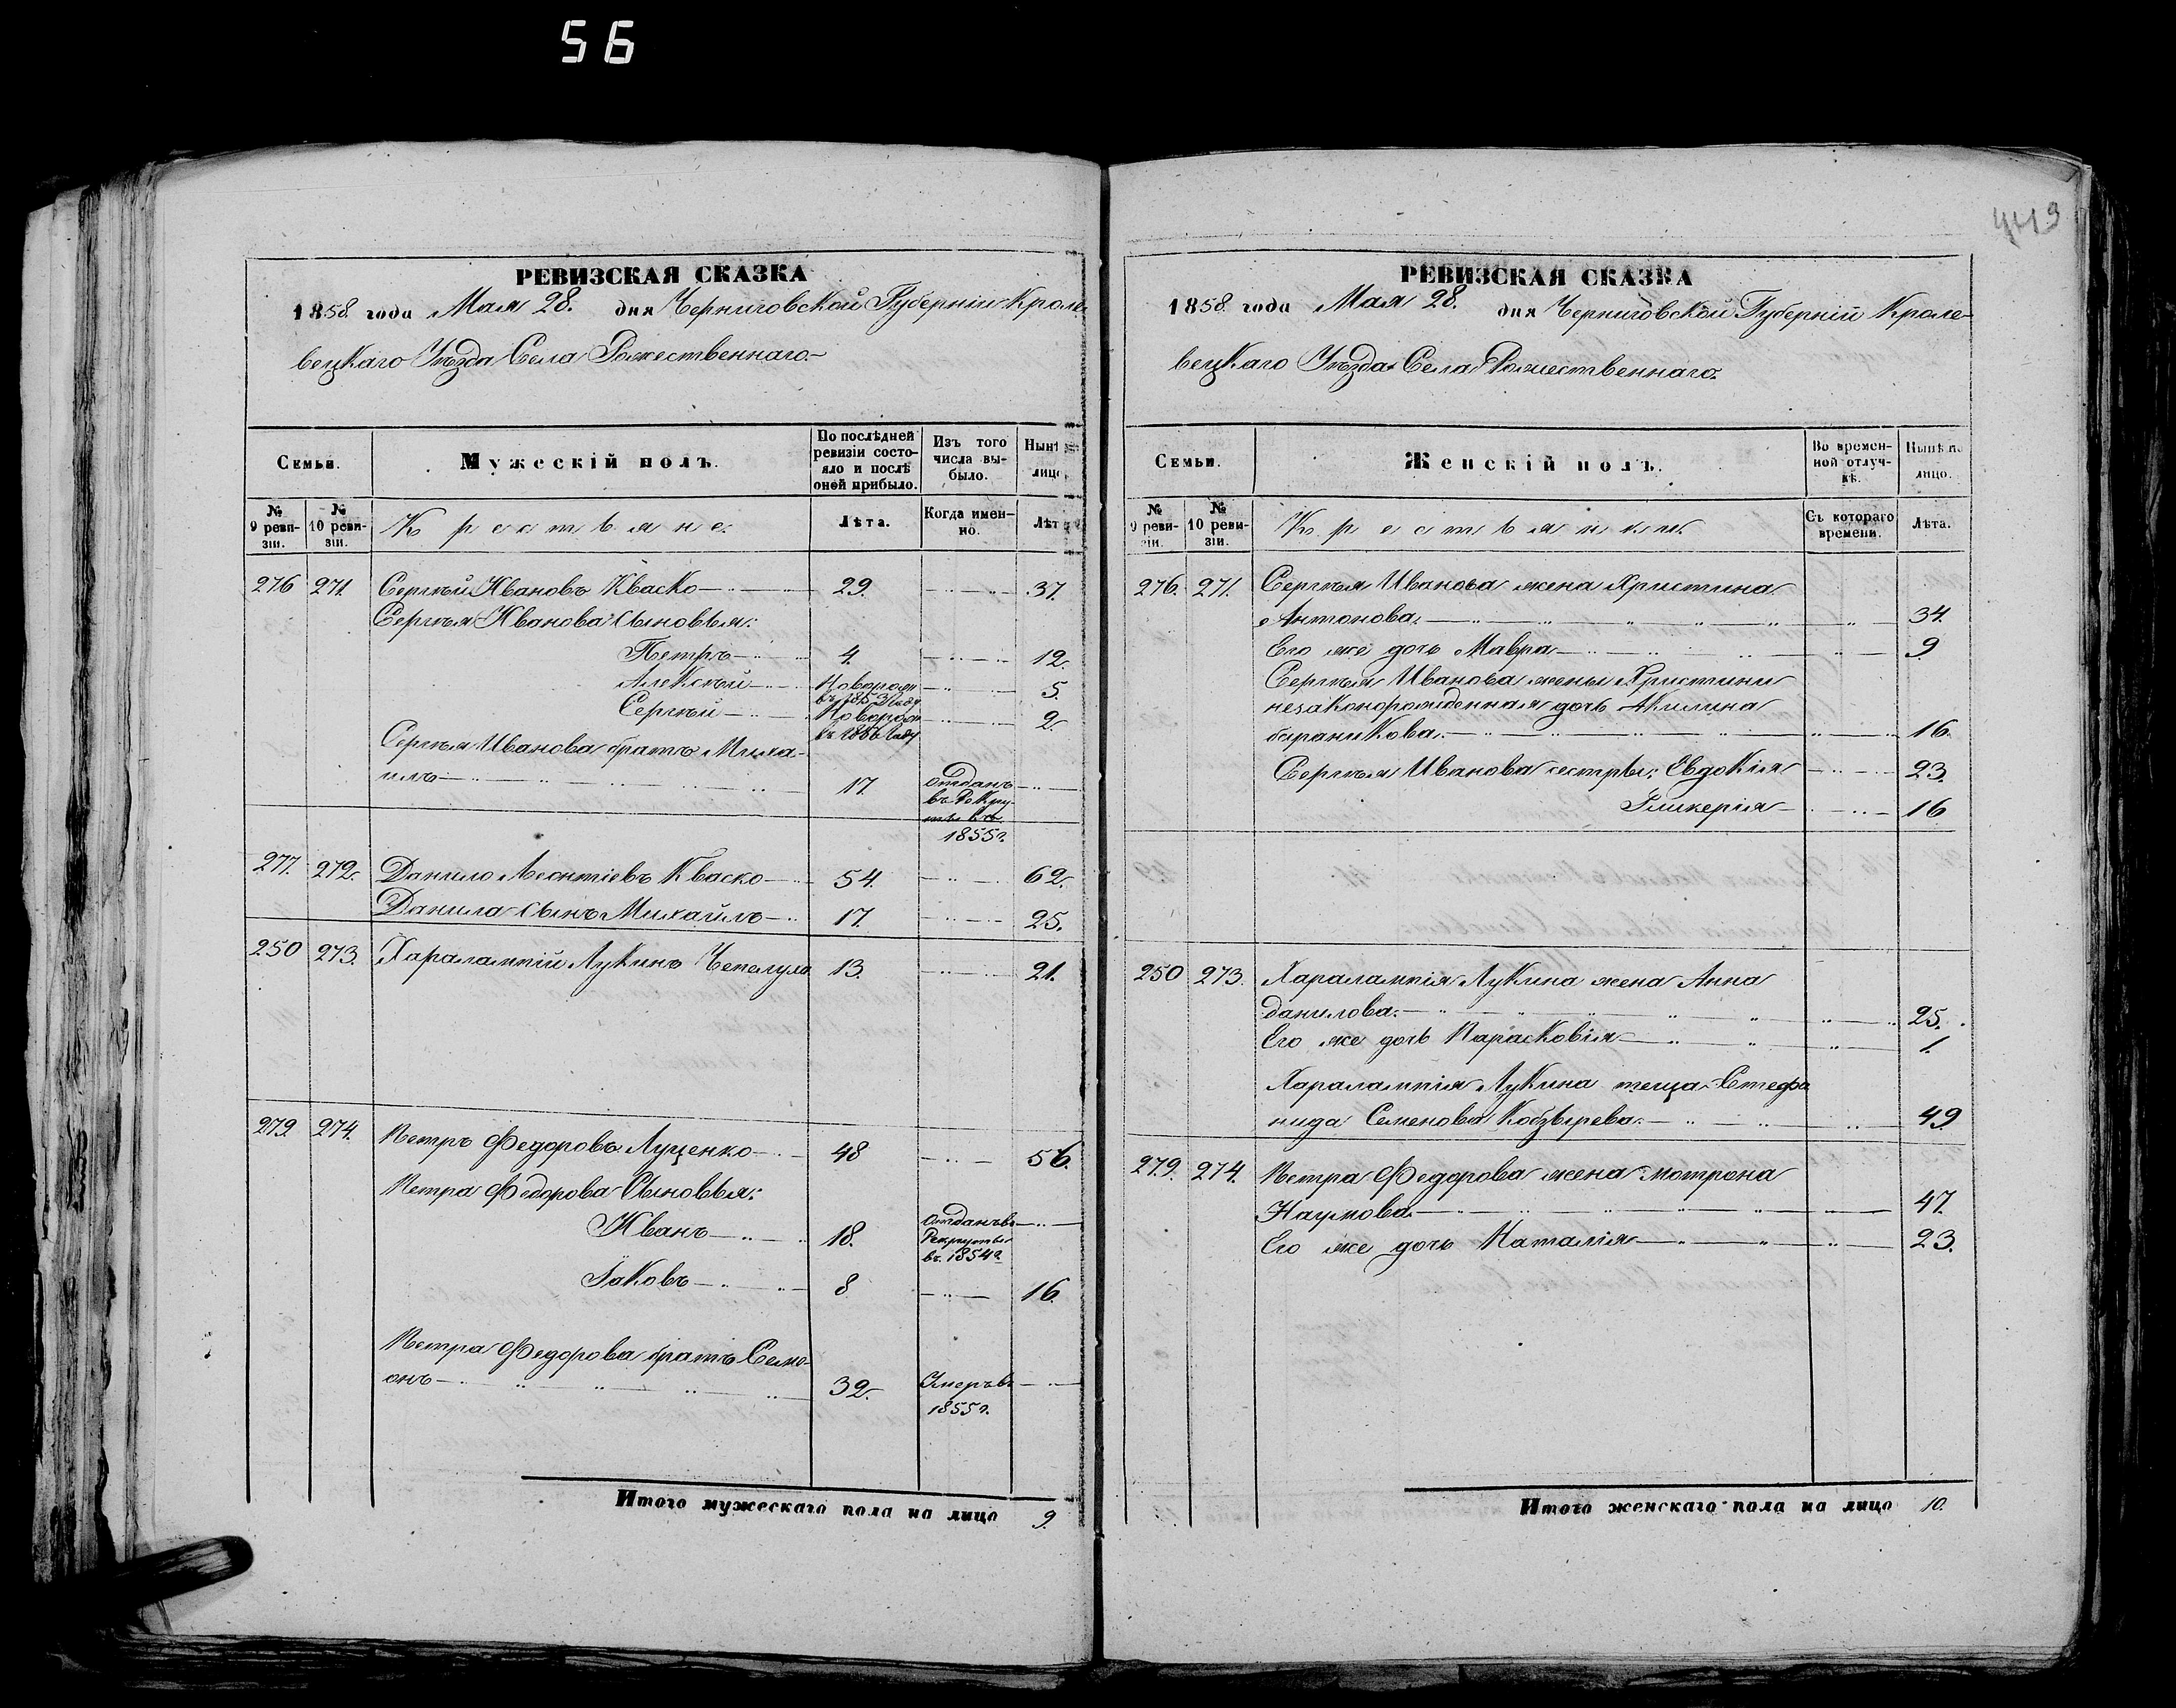 56
РЕВИЗСКАЯ СКАЗКА
1858. года Мая 28. дня Черниговской Губерніи Кроле-
вецкаго Уѣзда Села Рожественнаго.
Семьи.
Мужескій полъ.
По послѣдней ревизіи состо-яло и послѣ оной прибыло.
Изъ того числа вы-было.
Нынѣ
лицо
№ 9 реви-зіи.
№ 10 реви-зіи.
Крестьяне.
Лѣта.
Когда имен-но.
Лѣт
276 271. Сергѣй Ивановъ Кваско 29. 37.
Сергѣя Иванова Сыновья:
Петръ 4. 12.
Алексѣй Новорож въ 1853 году 5.
Сергѣй Новорож въ 1856 году 2.
Сергѣя Иванова братъ Миха-
илъ 17. отданъ въ Рекру-ты въ 1855г.
277. 272. Данило Леонтіевъ Кваско 54. 62.
Данила Сынъ Михайлъ 17. 25.
250 273. Харалампій Лукинъ Чепелуло 13. 21.
279. 274. Петръ Федоровъ Луценко 48 56.
Петра Федорова Сыновья:
Иванъ 18. отданъ въ Рекруты въ 1854г
Іаковъ 8 16.
Петра Федорова братъ Семе-
онъ 32. Умеръ въ 1855г.
Итого мужескаго пола на лицо 9.
РЕВИЗСКАЯ СКАЗКА
1858. года Мая 28. дня Черниговской Губерніи Кроле-
вецкаго Уѣзда Села Рожественнаго.
Семьи.
Женскій полъ.
Во времен-ной отлуч-кѣ.
Нынѣ на лицо.
№ 9 реви-зіи.
№ 10 реви-зіи.
Крестьянки.
Съ котораго времени.
Лѣта.
276. 271. Сергѣя Иванова жена Христина
Антонова 34.
Его же дочь Мавра 9
Сергѣя Иванова жены Христины
незаконорожденная дочь Акилина
бараникова 16.
Сергѣя Иванова сестры: Евдокія 23.
Гликерія 16
250 273. Харалампія Лукина жена Анна
данилова 25.
Его же дочь Парасковія 1.
Харалампія Лукина теща Стефа
нида Семенова Кобзырева 49
279. 274. Петра Федорова жена Мотрона
Наумова 47.
Его же дочь Наталія 23.
Итого женскаго пола на лицо 10.